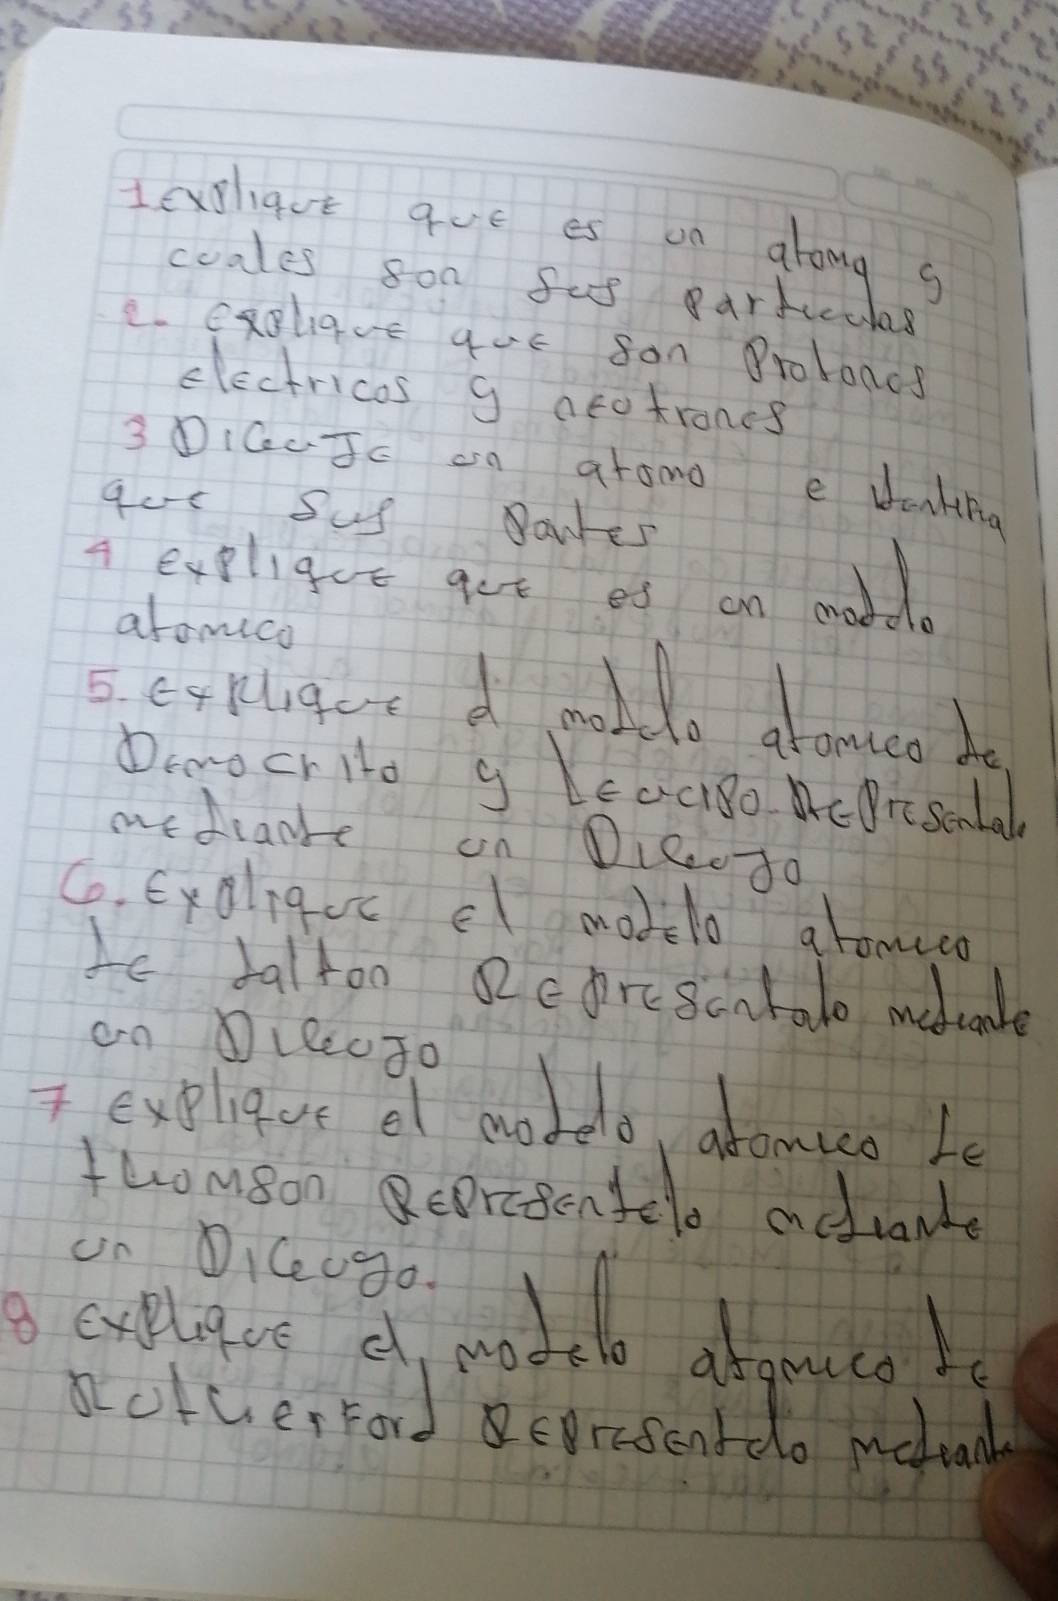 1 explique que es un atomo y
cuales son sus particulas
2. explique que son Protones
electricos y neutrones
3 Dibuje un atomo e identifiq
que sus Partes
4 explique que es un modelo
atomico
5. explique el modelo atomico de
Democrito y Leucipo. Representalo
mediante un Dibujo
6. explique el modelo atomico
de dalton Representalo mediante
un Dibujo
7 explique el modelo atomico de
thomson Representelo mediante
un Dibujo.
8 explique el modelo atomico de
Rutherford Representelo mediante